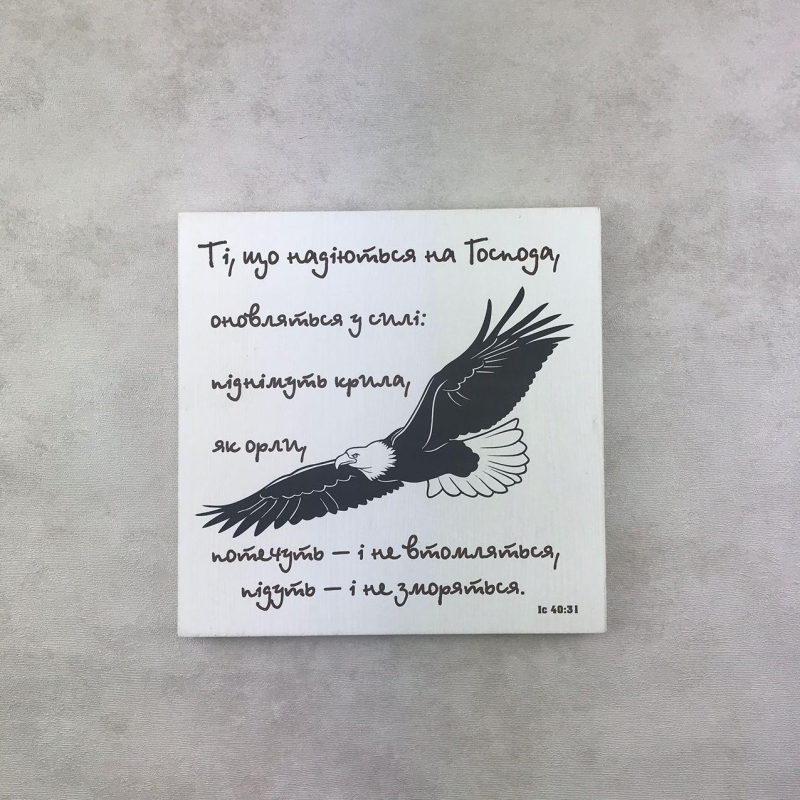 Ті, що надіються на Господа,
оновляться у силі:
піднімуть крила,
як орли,
потечуть — і не втомляться,
підуть — і не зморяться.
Іс 40:31